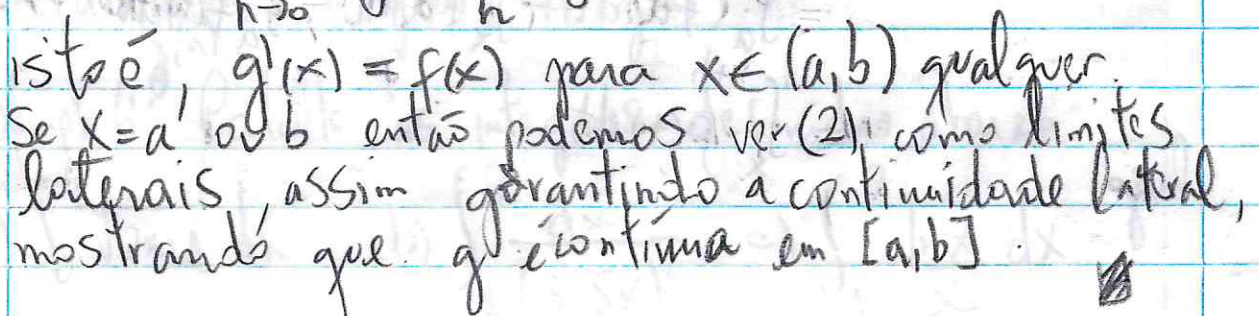 h→0 h
isto é, g'(x) = f(x) para x ∈ (a,b) qualquer.
Se x=a ou b então podemos ver (2) como limites
laterais, assim garantindo a continuidade lateral,
mostrando que g é contínua em [a,b].